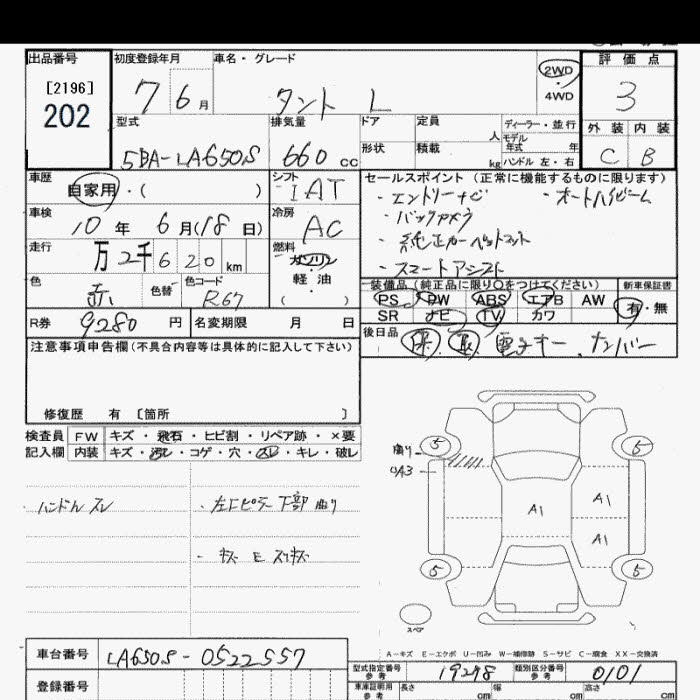 出品番号 初度登録年月 車名・グレード 2WD 評価点
[2196] 7 6月 タント L ・ 3
202 4WD
型式 排気量 ドア 定員 ディーラー・並行 外装 内装
人 モデル
5BA-LA650S 660cc 形状 積載 年式 年 C B
kg ハンドル 左・右
車歴 シフト セールスポイント(正常に機能するものに限ります)
自家用・( ) IAT ・エントリーナビ ・オートハイビーム
車検 冷房 ・バックカメラ
10年 6月(18日) AC ・純正カーペットマット
走行 燃料
万2千620km ガソリン ・スマートアシスト
色 色替 色コード 軽油 装備品(純正品に限り○をつけてください) 新車保証書
赤 R67 ( ) PS PW ABS エアB AW 有・無
R券 9280円 名変期限 月 日 SR ナビ TV カワ
注意事項申告欄(不具合内容等は具体的に記入して下さい) 後日品 保、取、電子キー、ナンバー
修復歴 有 [箇所 ]
検査員 FW キズ・飛石・ヒビ割・リペア跡・×要
記入欄 内装 キズ・汚レ・コゲ・穴・スレ・キレ・破レ
・ハンドルスレ ・左Fピラー下部曲り
・キズ E スリキズ
曲り 5 5
UA3
A1 A1
A1
5 5
スペア
A-キズ E-エクボ U-凹み W-補修跡 S-サビ C-腐食 XX-交換済
車台番号 LA650S-0522557 型式指定番号 参考 19278 類別区分番号 参考 0101
登録番号 車庫証明用 参考 長さ cm 幅 cm 高さ cm